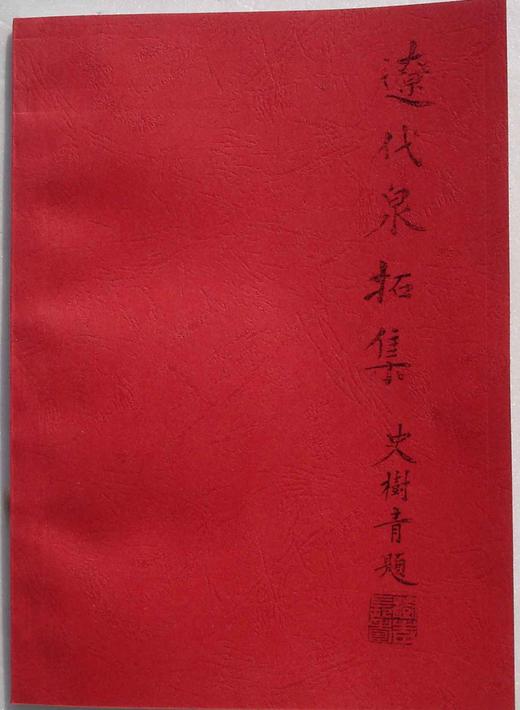 遼代泉拓集
史樹青題